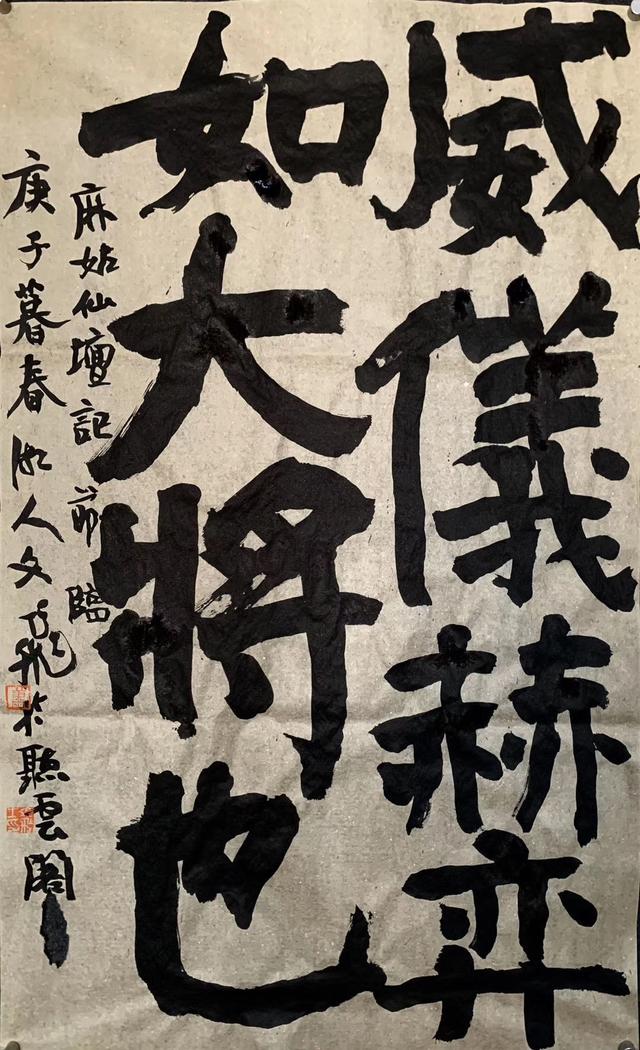 威儀赫弈
如大將也
麻姑仙壇記節臨
庚子暮春湘人文飛於聽雲閣